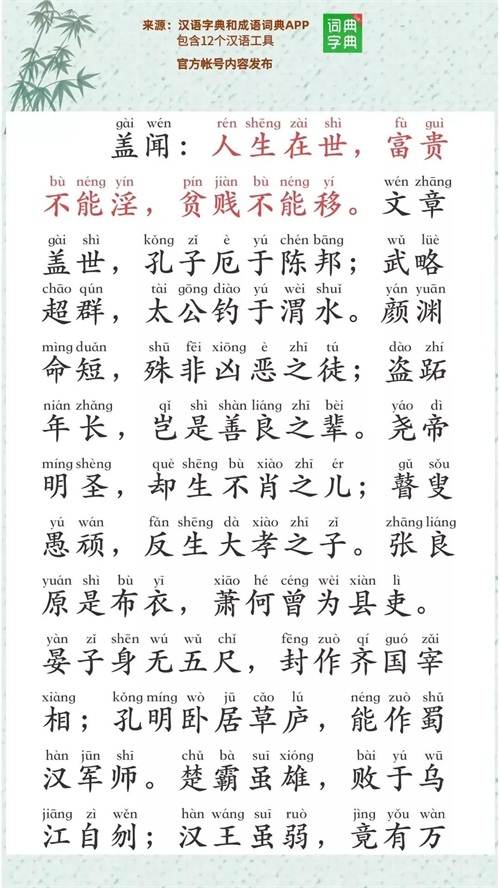 来源：汉语字典和成语词典APP
包含12个汉语工具
官方帐号内容发布
词典
字典
gài wén rén shēng zài shì fù guì
盖闻：人生在世，富贵
bù néng yín pín jiàn bù néng yí wén zhāng
不能淫，贫贱不能移。文章
gài shì kǒng zǐ è yú chén bāng wǔ lüè
盖世，孔子厄于陈邦；武略
chāo qún tài gōng diào yú wèi shuǐ yán yuān
超群，太公钓于渭水。颜渊
mìng duǎn shū fēi xiōng è zhī tú dào zhí
命短，殊非凶恶之徒；盗跖
nián zhǎng qǐ shì shàn liáng zhī bèi yáo dì
年长，岂是善良之辈。尧帝
míng shèng què shēng bù xiào zhī ér gǔ sǒu
明圣，却生不肖之儿；瞽叟
yú wán fǎn shēng dà xiào zhī zǐ zhāng liáng
愚顽，反生大孝之子。张良
yuán shì bù yī xiāo hé céng wèi xiàn lì
原是布衣，萧何曾为县吏。
yàn zǐ shēn wú wǔ chǐ fēng zuò qí guó zǎi
晏子身无五尺，封作齐国宰
xiàng kǒng míng wò jū cǎo lú néng zuò shǔ
相；孔明卧居草庐，能作蜀
hàn jūn shī chǔ bà suī xióng bài yú wū
汉军师。楚霸虽雄，败于乌
jiāng zì wěn hàn wáng suī ruò jìng yǒu wàn
江自刎；汉王虽弱，竟有万